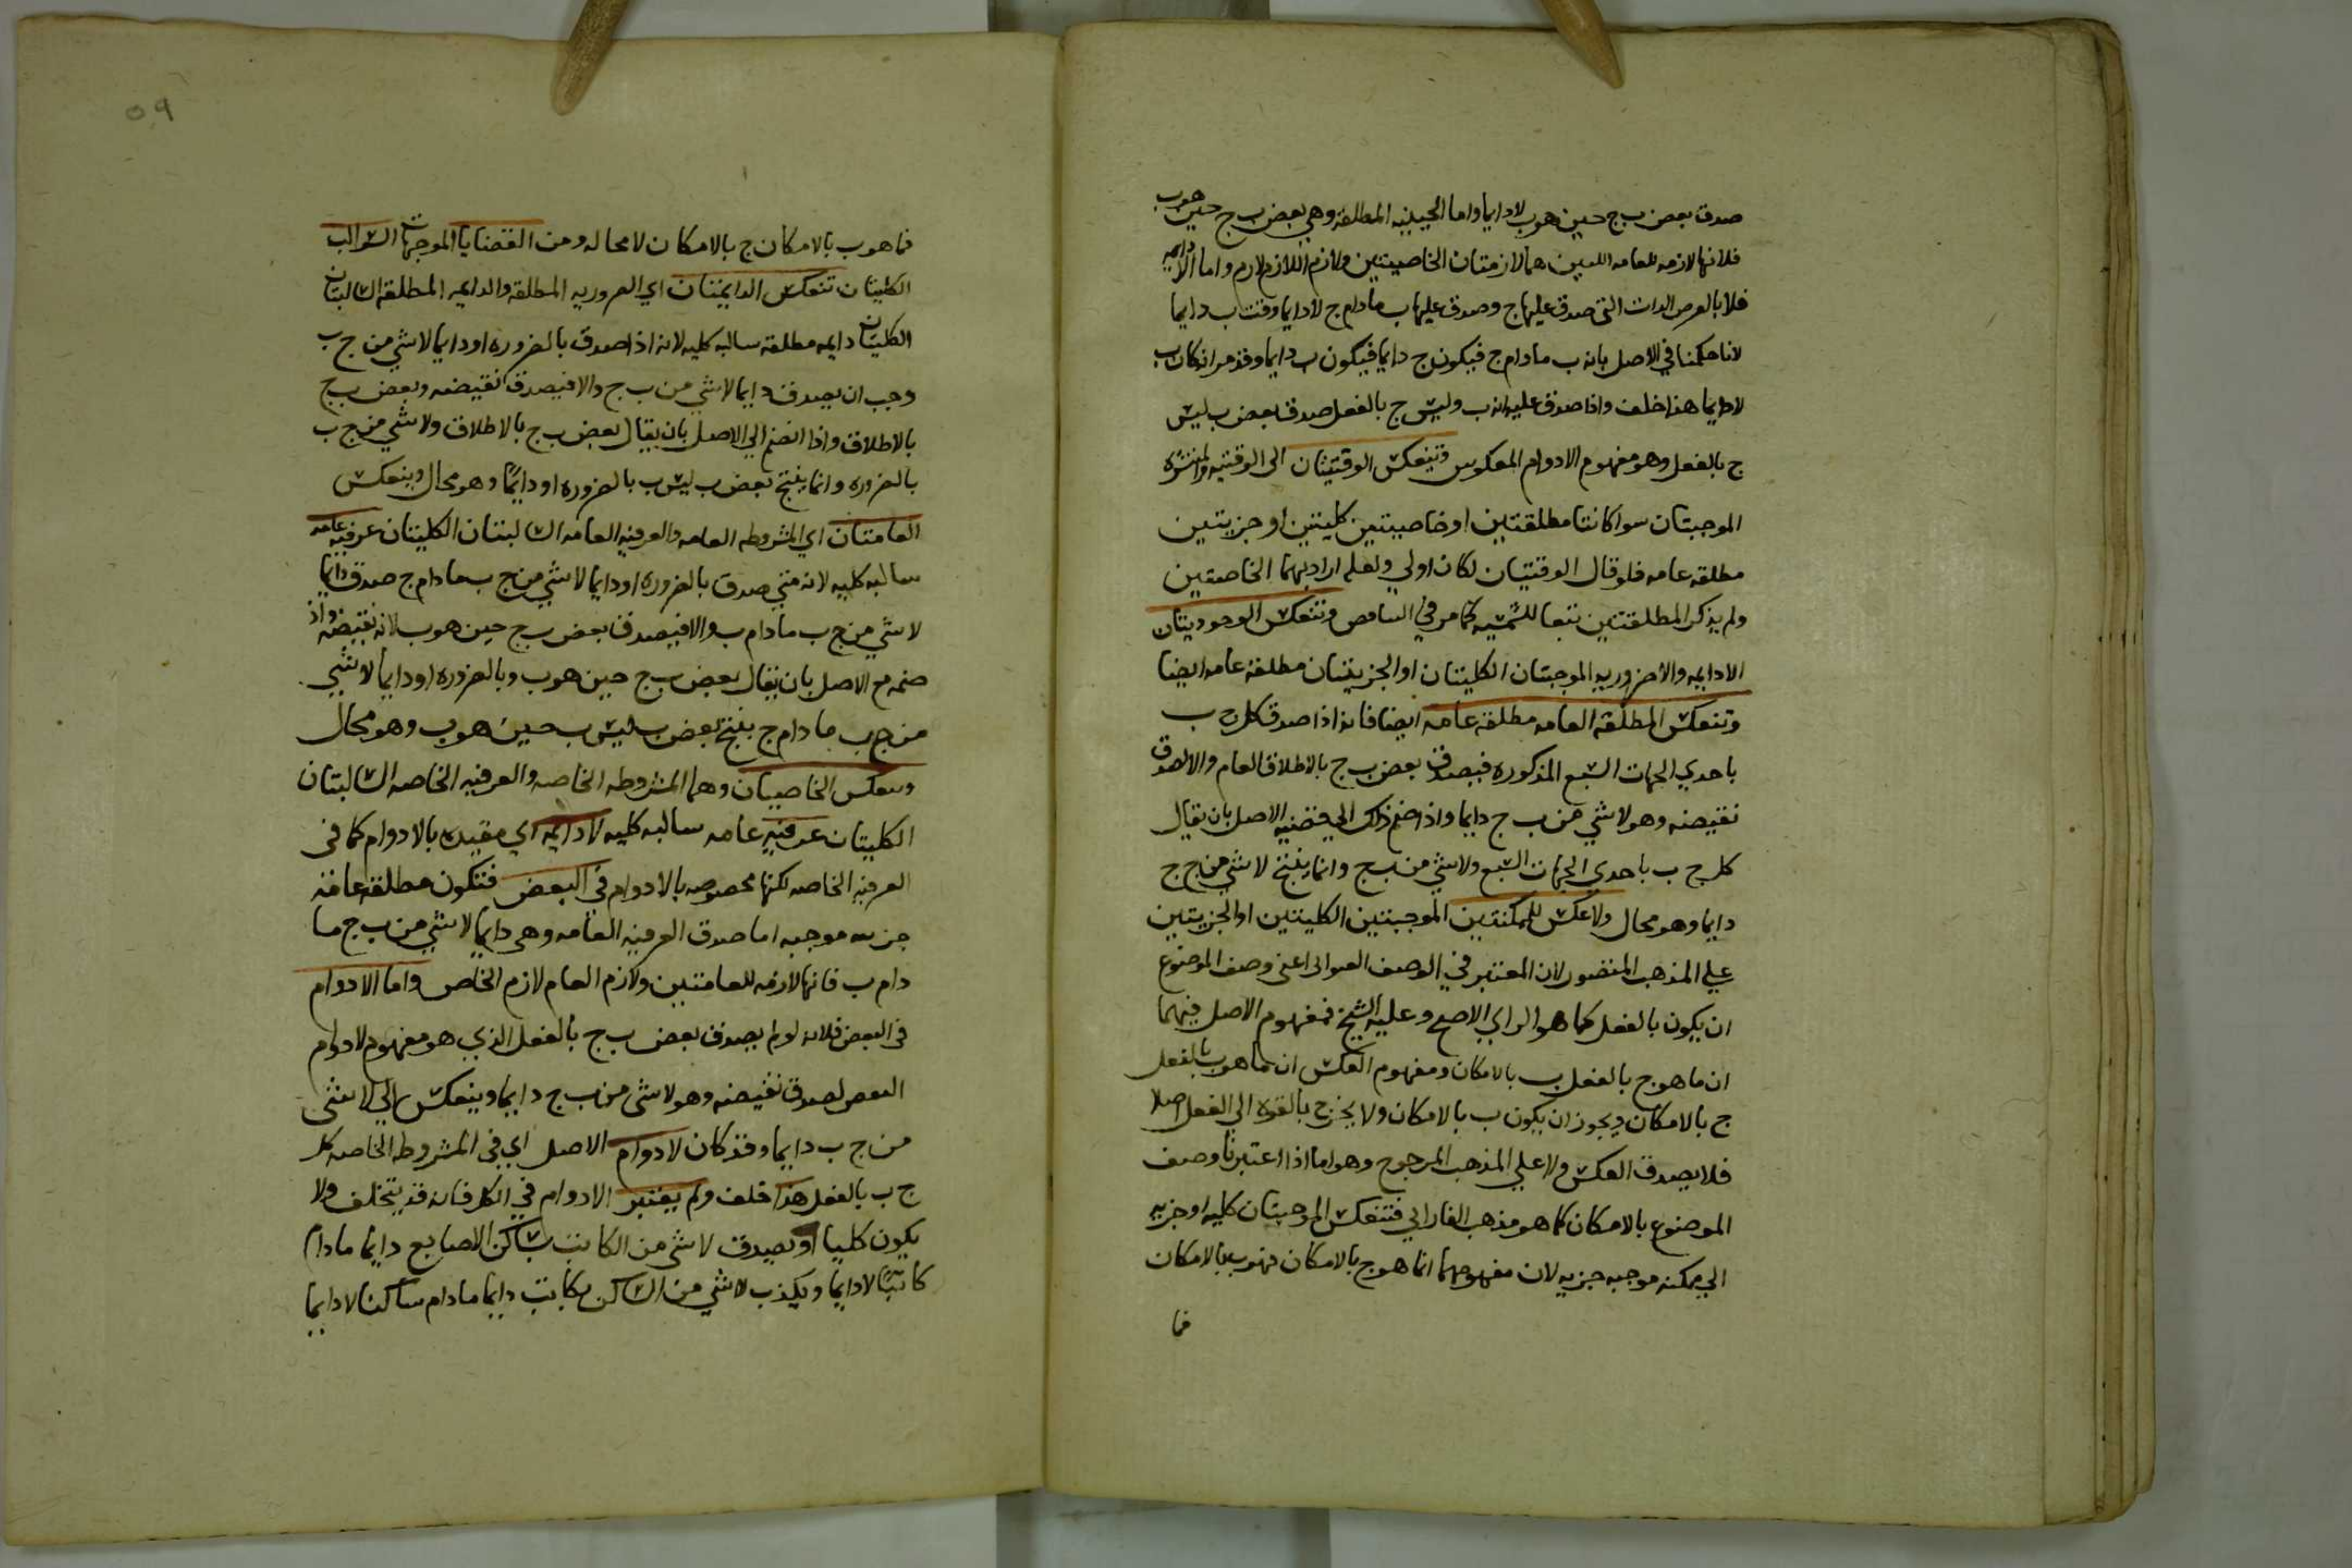 صدق بعض ب ج حين هو ب لا دايما واما الحينيه المطلقه وهي بعض ب ج حين هو ب
فلانها لازمه للعامه اللتين هما لازمتان الخاصيتين ولازم اللازم لازم واما اللادايمه
فلا بالعرض الذات التى صدق عليها ج وصدق عليها ب مادام ج لا دايما وقت ب دايما
لانا حكمنا في الاصل بانه ب مادام ج فيكون ج دايما فيكون ب دايما وقد مر انه كان ب
لا دايما هذا خلف واذا صدق عليه انه ب وليس ج بالفعل صدق بعض ب ليس
ج بالفعل وهو مفهوم الادوام المعكوس وتنعكس الوقتيتان الى الوقتيه والمنتشره
الموجبتان سوا كانتا مطلقتين او خاصيتين كليتين او جزيتين
مطلقه عامه فلو قال الوقتيتان لكان اولي ولعله اراد بهما الخاصتين
ولم يذكر المطلقتين تبعا للشمسيه كما مر في وتنعكس الوجوديتان
الادايمه والاضروريه الموجبتان الكليتان او الجزيتان مطلقه عامه ايضا
وتنعكس المطلقه العامه مطلقه عامه ايضا فانه اذا صدق كل ج ب
باحدي الجهات السبع المذكوره فيصدق بعض ب ج بالاطلاق العام والا لصدق
نقيضه وهو لا شي من ب ج دايما واذا ضم ذلك الي قضيه الاصل بان يقال
كل ج ب باحدي الجهات السبع ولا شي من ب ج وانما ينتج لا شي من ج ج
دايما وهو محال ولا عكس للممكنتين الموجبتين الكليتين او الجزيتين
علي المذهب المنصور لان المعتبر في الوصف العنوانى اعنى وصف الموضوع
ان يكون بالفعل كما هو الراي الاصح وعليه الشيخ فمفهوم الاصل فيهما
ان ما هو ج بالفعل ب بالامكان ومفهوم العكس ان ما هو ب بالفعل
ج بالامكان ويجوز ان يكون ب بالامكان ولا يخرج بالقوه الي الفعل اصلا
فلا يصدق العكس ولا علي المذهب المرجوح وهو اما اذا اعتبرنا وصف
الموضوع بالامكان كما هو مذهب الفارابي فتنعكس الموجبتان كليه او جزيه
الي ممكنه موجبه جزيه لان مفهومهما انما هو ج بالامكان فهو ب بالامكان
فما
٥٩
فما هو ب بالامكان ج بالامكان لا محاله ومن القضايا الموجهات السوالب
الكليتان تنعكس الدايمتان اي الضروريه المطلقه والدايمه المطلقه السالبتان
الكليتان دايمه مطلقه سالبه كليه لانه اذا صدق بالضروره او دايما لا شي من ج ب
وجب ان يصدق دايما لا شي من ب ج والا فيصدق نقيضه وبعض ب ج
بالاطلاق واذا انضم الي الاصل بان يقال بعض ب ج بالاطلاق ولا شي من ج ب
بالضروره وانما ينتج بعض ب ليس ب بالضروره او دايمًا وهو محال وينعكس
العامتان اي المشروطه العامه والعرفيه العامه السالبتان الكليتان عرفيه عامه
سالبه كليه لانه متي صدق بالضروره او دايما لا شي من ج ب مادام ج صدق دايما
لا شي من ج ب مادام ب والا فيصدق بعض ب ج حين هو ب لانه نقيضه واذ
ضمه مع الاصل بان يقال بعض ب ج حين هو ب وبالضروره او دايما لا شي
من ج ب مادام ج ينتج بعض ب ليس ب حين هو ب وهو محال
وتنعكس الخاصيتان وهما المشروطه الخاصه والعرفيه الخاصه السالبتان
الكليتان عرفيه عامه سالبه كليه لا دايمه اي مقيده بالادوام كما فى
العرفيه الخاصه لكنها مخصوصه بالادوام في البعض فتكون مطلقه عامه
جزييه موجبه اما صدق العرفيه العامه وهي دايما لا شي من ب ج ما
دام ب فانها لازمه للعامتين ولازم العام لازم الخاص واما الادوام
فى البعض فلانه لو لم يصدق بعض ب ج بالفعل الذي هو مفهوم لا دوام
البعض لصدق نقيضه وهو لا شى من ب ج دايما وينعكس الي لا شى
من ج ب دايما وقد كان لا دوام الاصل اي في المشروطه الخاصه كل
ج ب بالفعل هذا خلف ولم يعتبر الادوام في الكل فانه قد يتخلف ولا
يكون كليا او يصدق لا شى من الكاتب بساكن الاصابع دايما مادام
كاتبا لا دايما ويكذب لا شي من الساكن بكاتب دايما مادام ساكنا لا دايما